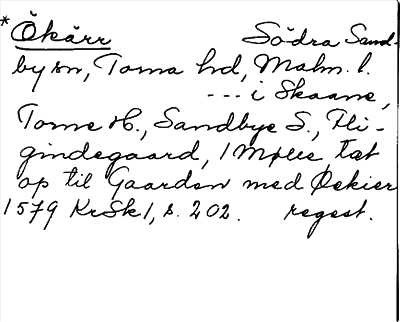 * Ökärr Södra Sand-
by sn, Torna hd, Malm. l.
--- i Skaane,
Torne H., Sandbye S., Fli-
gindegaard, 1 Mølle, tæt
op til Gaarden med Øekier
1579 KrSk 1, s. 202. regest.